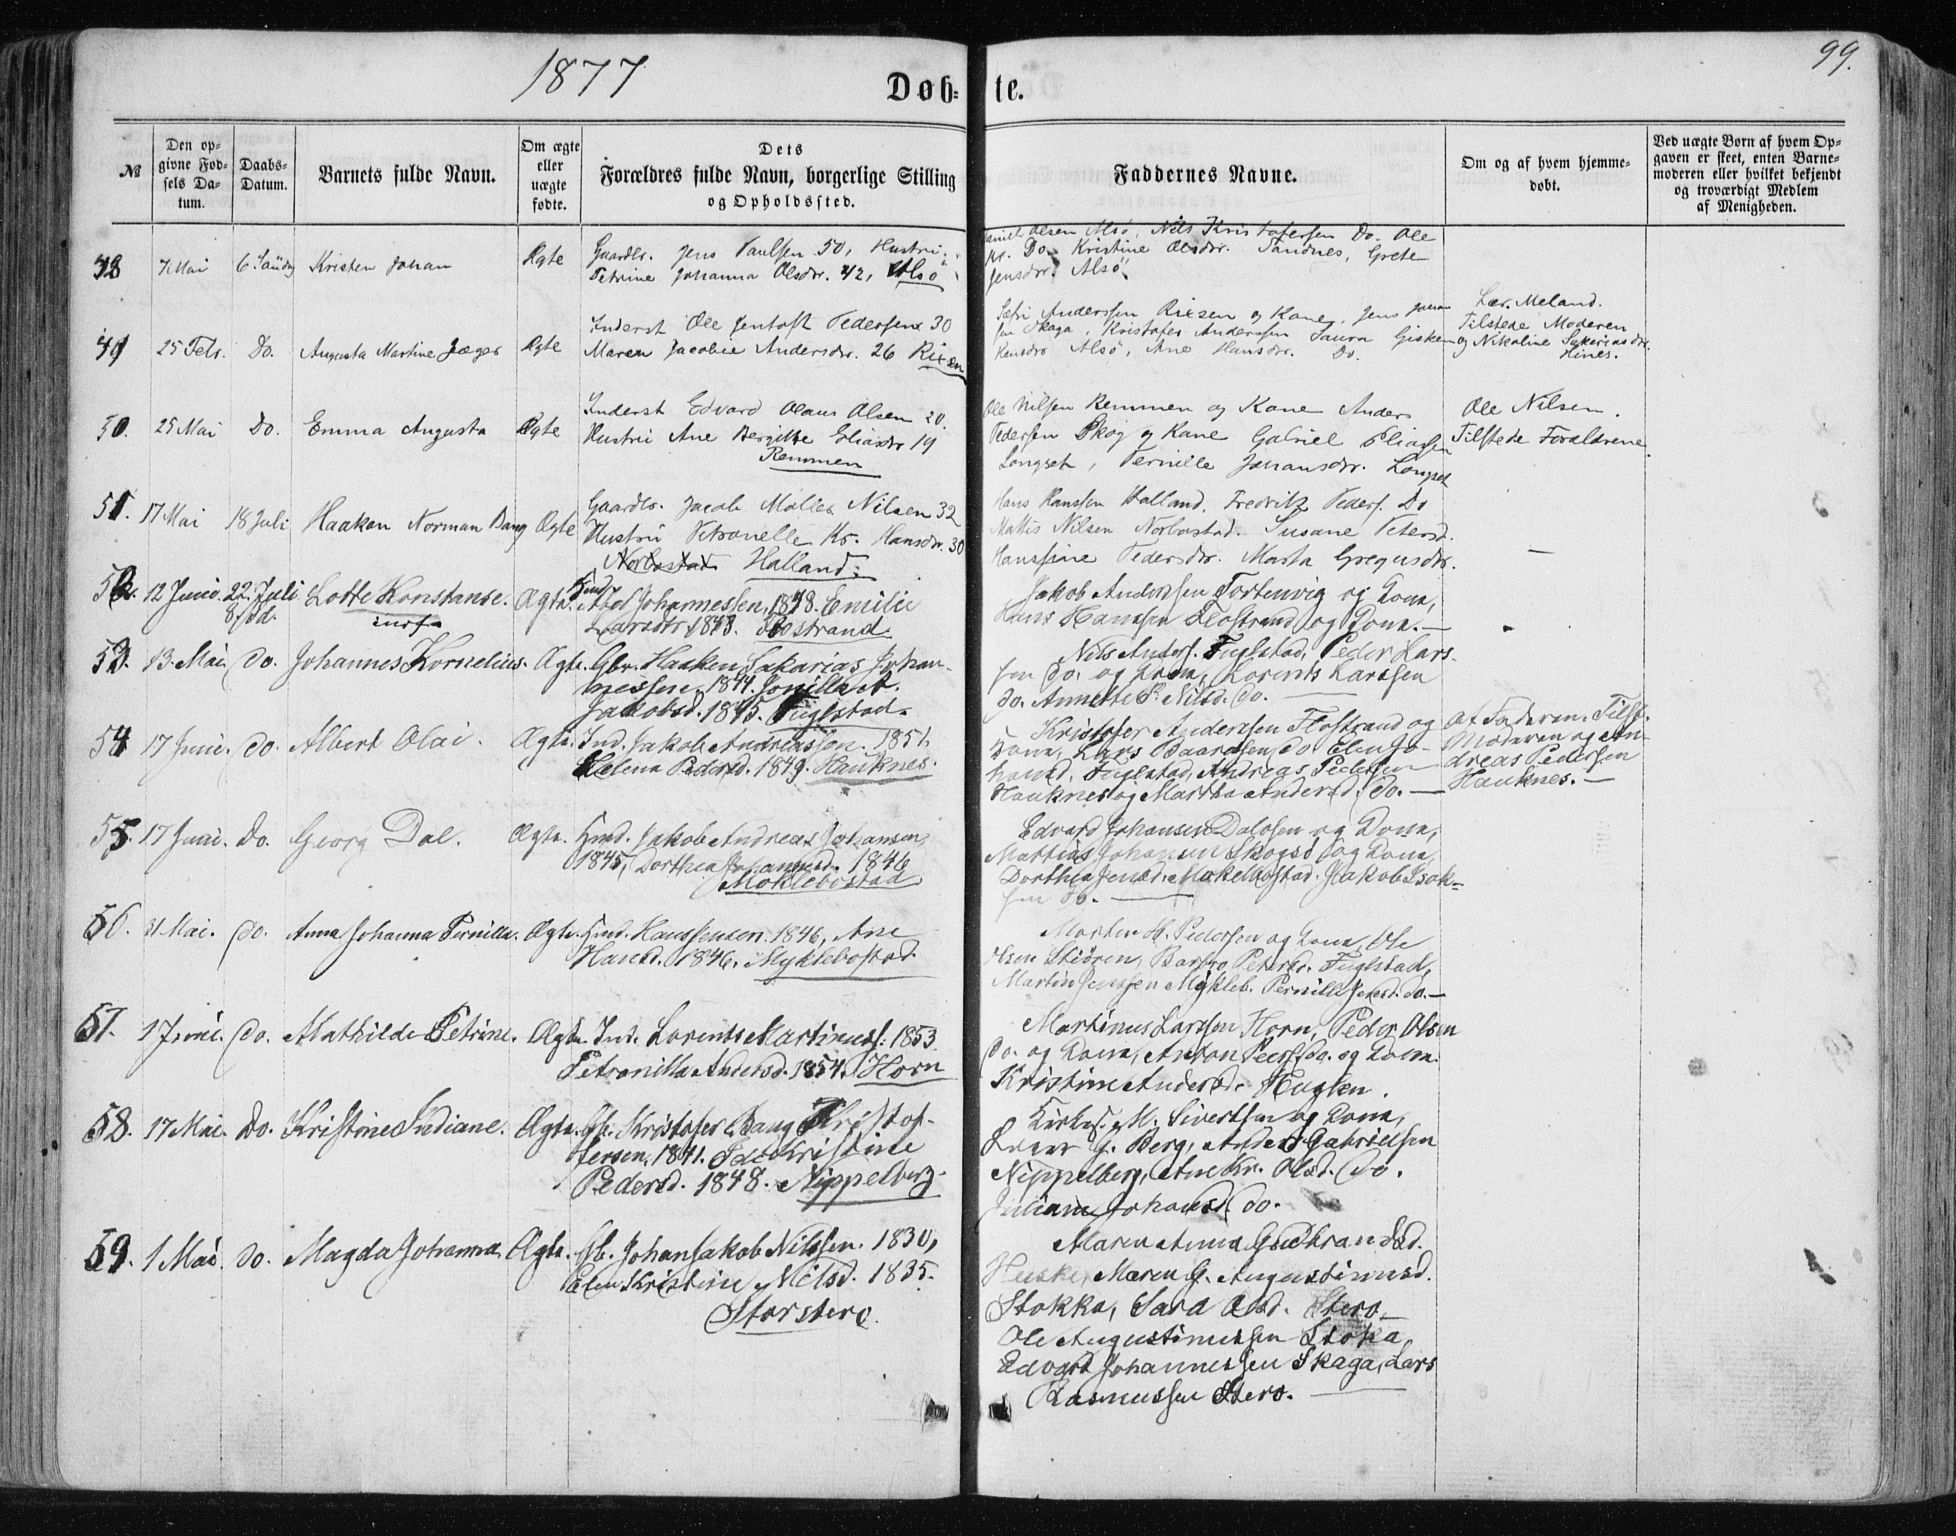 1877
99.
Døb-
te.
№
Den op-
givne Fød-
sels Da-
tum.
Daabs-
Datum.
Barnets fulde Navn.
Om ægte
eller
uægte
fødte.
Dets
Forældres fulde Navn, borgerlige Stilling
og Opholdssted.
Faddernes Navne.
Om og af hvem hjemme-
døbt.
Ved uægte Børn af hvem Op-
gaven er skeet, enten Barne-
moderen eller hvilket bekjendt
og troværdigt Medlem
af Menigheden.
48 7 Mai Kristen Johan Ægte
Gaardbr. Jens Paulsen 50, Hustru
Petrine Johanna Olsdr. 42, Alsø
Olsen Alsø, Nils Kristofersen Do. Ole
Do Kristine Olsdr. Sandnes, Grete
Jensdr. Alsø.
49 25 Febr. Do. Augusta Martine Jæger Ægte
Inderst Ole Jentoft Pedersen 30
Maren Jacobie Andersdr. 26
Anderssen og Kone, Jens
Skaga, Kristofer Anderssen
Alsø, Ane Hansdr. Do.
Lær. Meland.
Tilstede Moderen
og Nikoline
50. 25 Mai Do. Emma Augusta Ægte
Inderst Edvard Olaus Olsen 20.
Hustru Ane Bergitte Eliasdr 19
Remmen
Ole Nilsen Remmen og Kone Anders
Pedersen Skog og Kane Gabriel Eliassen
Longset, Pernille Johansdr. Longset
Ole Nilsen.
Tilstede Forældrene.
51. 17 Mai 18 Juli Haakon Norman Bang Ægte
Gaardbr. Jacob Møller Nilsen 32
Hustru Petronelle Kr. Hansdr. 30
Halland.
Hans Hanssen Halland, Fredrik Peders. Do
Mattis Nilsen Norbostad. Susane Petersd.
Hanssine Pedersdr. Marta Gregusdr.
—
52. 12 Juni 22. Juli Lotte Konstanse. Ægte.
8. s.d.
Abel Johannessen, 1848. Emilie
Larsdtr 1848. Flostrand
Jakob Anderssen Tortenvig og Kona,
Hans Hanssen Flostrand og Kona.—
53. 13. Mai. do. Johannes Kornelius. Ægte.
Gbr. Haaken Sakarias Johan-
nessen. 1844.
Jakobsd. 1845. Fuglstad.
Nils Anders. Fuglstad, Peder Lars-
sen do. og Kona, Lorents Larssen
do. Annette P. Nilsd. do. —
54 17 Juni. do. Albert Olai. Ægte.
Ind. Jakob Andreassen. 1851.
Helena Pedersd. 1849. Hauknes.
Kristofer Anderssen Flostrand og
Kona, Lars Baardsen do Elen Jo-
hansd. Fuglstad, Andreas Pedersen
Hauknes og Martha Andersd. do. —
Af Faderen. Tilst.
Moderen og An-
dreas Pedersen
Hauknes. —
55. 17 Juni. do. Georg Dal. Ægte.
Hmd. Jakob Andreas Johansen
1845, Dorthea Johannesd. 1846
Moklebostad
Edvard Johansen Dalosen og Kona,
Mattias Johansen Skogsø og Kona,
Dorthea Jensd. Moklebostad. Jakob Isak-
sen do. —
56. 31 Mai. do. Anna Johanna Pernilla. Ægte.
Hmd. Hans Jensen. 1846, Ane
Hansd. 1846. Myklebostad
Morten H. Pedersen og Kona, Ole
Olsen Stiøren, Petersd. Fuglstad,
Martin Jenssen Mykleb. Pernilla Jensd. do.—
57. 1 Juni. do. Mathilde Petrine. Ægte.
Ind. Lorents Martinuss. 1853
Petronilla Andersd. 1854. Horn
Martinus Larssen Horn, Peder Olsen
do. og Kona, Anton Peders. do. og Kona
Kristine Andersd. Huglen.
58. 17 Mai. Do. Kristine Indiane. Ægte.
Gb. Kristofer Bang Kristof-
fersen, 1841. Ida Kristine
Pedersd. 1848. Nippelberg
Kirkes. M. Sivertsen og Kona,
Einar G. Berg, Anders Gabrielsen
Nippelberg, Ane Kr. Olsd. Do.
Juliane Johansd. do.
59. 1 Mai. do. Magda Johanna Ægte.
Gb. Johan Jakob Nilssen. 1830,
Elen Kristine Nilsd. 1835.
Storstero.
Maren Anna Gudbrandsd.
Huske, Maren G. Augustinusd.
Stokka, Sara Olsd. Stero.
Ole Augustinussen Stoka,
Edvard Johannessen Skaga, Lars
Rasmussen Stero. —